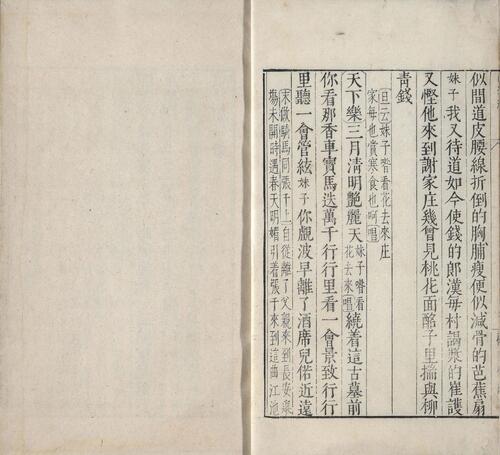 似間道皮腰線折倒的胸脯瘦便似減骨的芭蕉扇
妹子我又待道如今使錢的郎漢每村謁漿的崔護
又慳他來到謝家庄幾曾見桃花面酩子里揣與柳
青錢
旦云妹子喒看花去來庄
家每也賞寒食也呵唱
天下樂三月淸明艷麗天妹子喒看花去來唱繞着這古墓前
你看那香車寶馬迭萬千行行里看一會景致行行
里聽一會管絃妹子你覷波早離了酒席兒偌近遠
末做騎馬同張千上自從離了父親來到長安舉
塲未開時遇春天明媚引着張千來到這曲江池